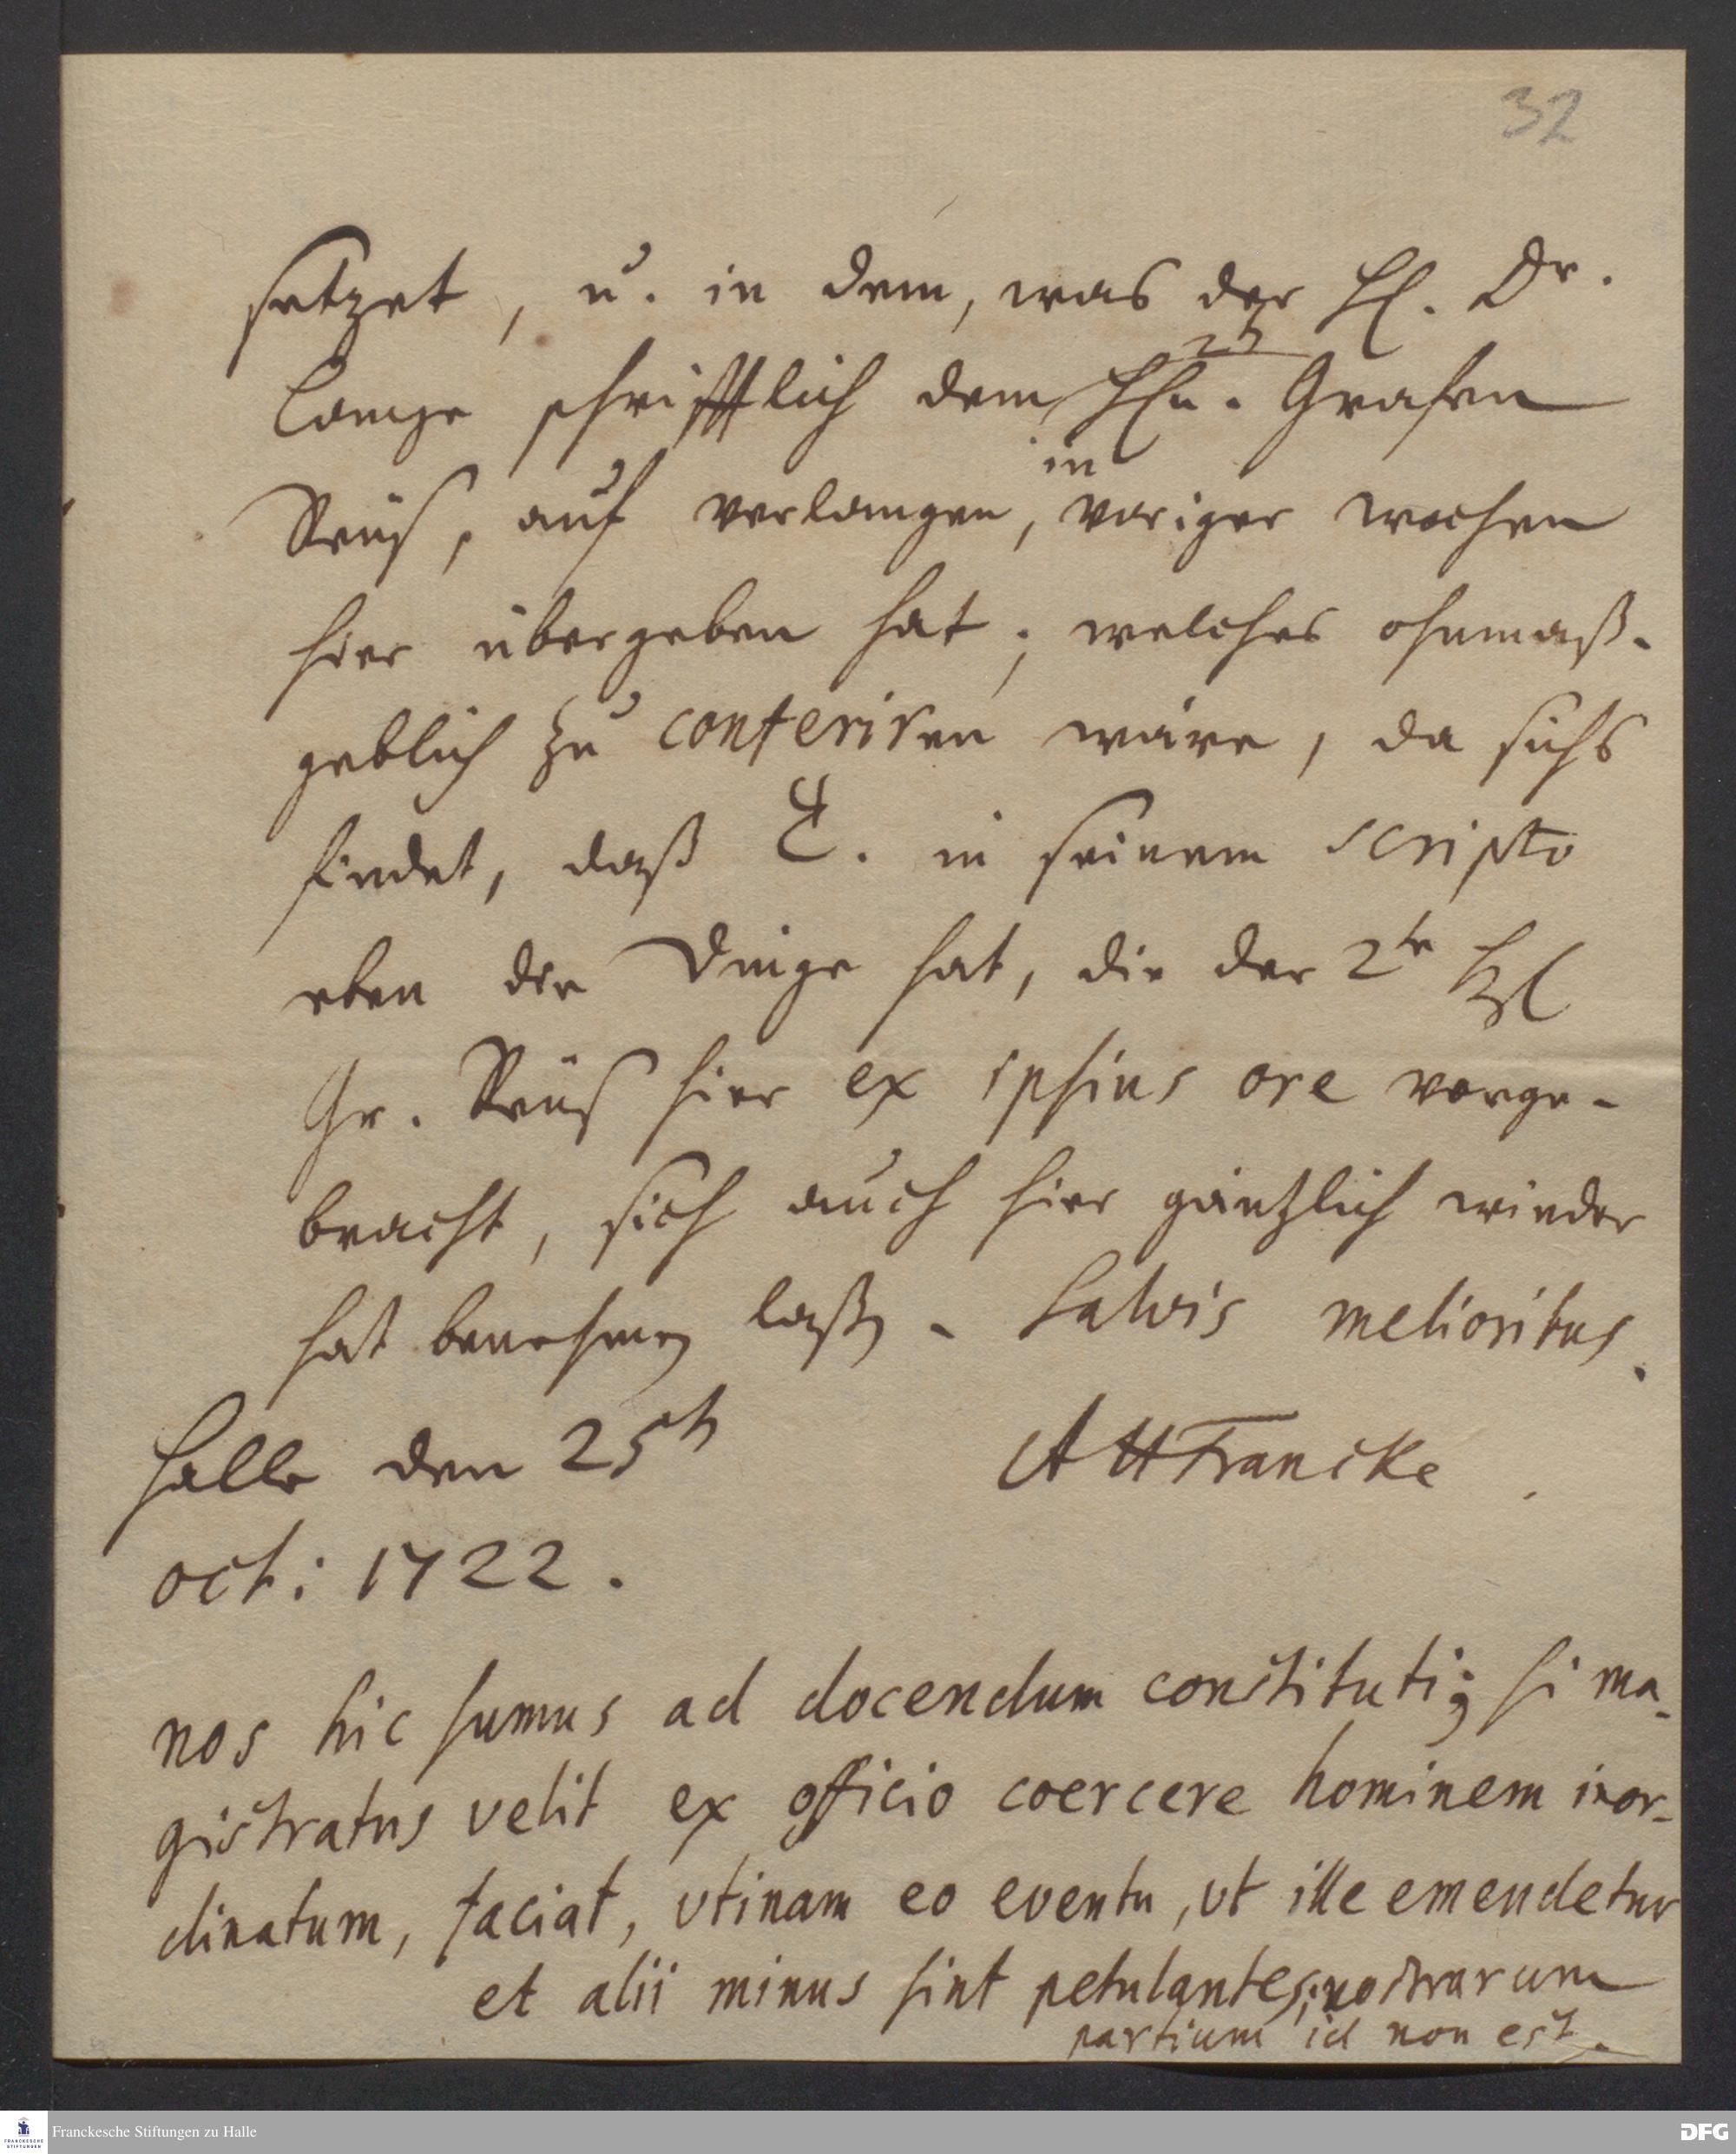 32
setzet, u. in dem, was der H. Dr.
Lange schrifftlich dem Hn. Grafen
2t
Reuß, auf verlangen, in voriger wochen
hier übergeben hat; welches ohnmaß-
geblich zu conferiren wäre, da sichs
findet, daß E. in seinem scripto
eben die Dinge hat, die der 2te H
Gr. Reuß hier ex ipsius ore vorge-
bracht, sich auch hier gäntzlich wieder
hat benehmen laßen. Salvis melioribus.
Halle den 25ten AHFrancke
oct: 1722.
nos hic sumus ad docendum constituti; si ma-
gistratus velit ex officio coercere hominem inor-
dinatum, faciat, utinam eo eventu, ut ille emendetur
et alii minus sint petulantes; nostrarum
partium id non est.
Franckesche Stiftungen zu Halle
FRANCKESCHE STIFTUNGEN
DFG